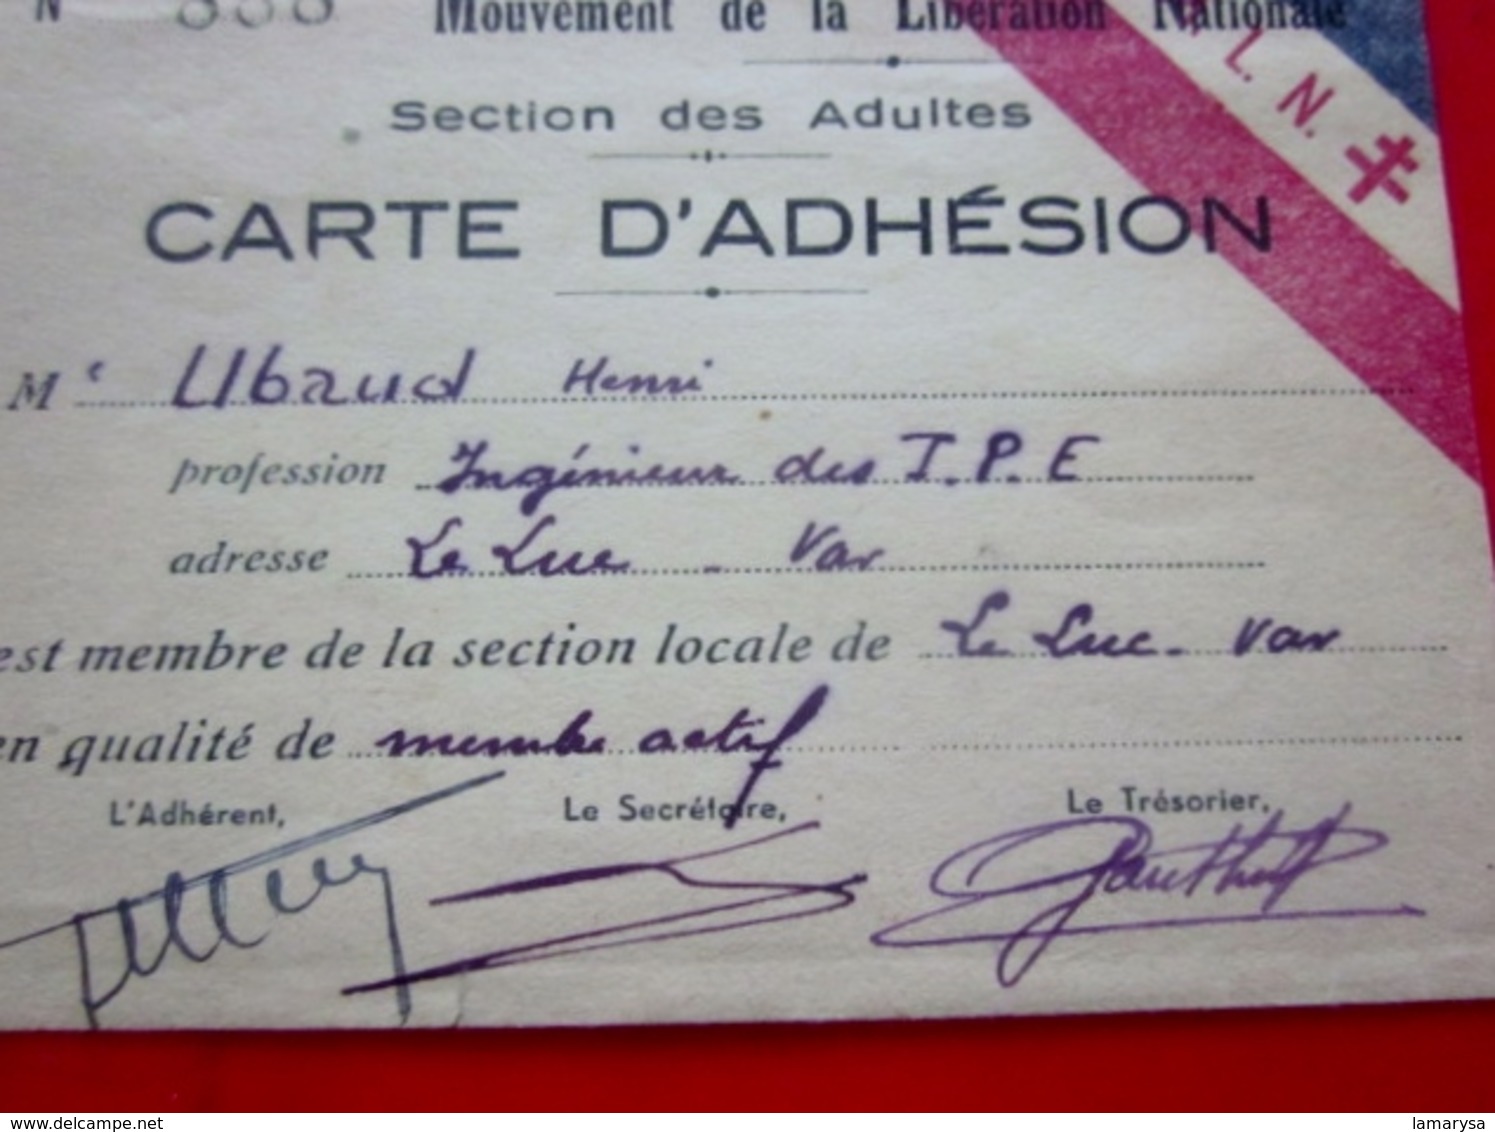 N 838 Mouvement de la Libération Nationale
L. N.
Section des Adultes
CARTE D'ADHÉSION
M Ubaud Henri
profession Ingénieur des T.P.E
adresse Le Luc - Var
est membre de la section locale de Le Luc - Var
en qualité de membre actif
L'Adhérent, Le Secrétaire, Le Trésorier,
delcampe.net
lamarysa